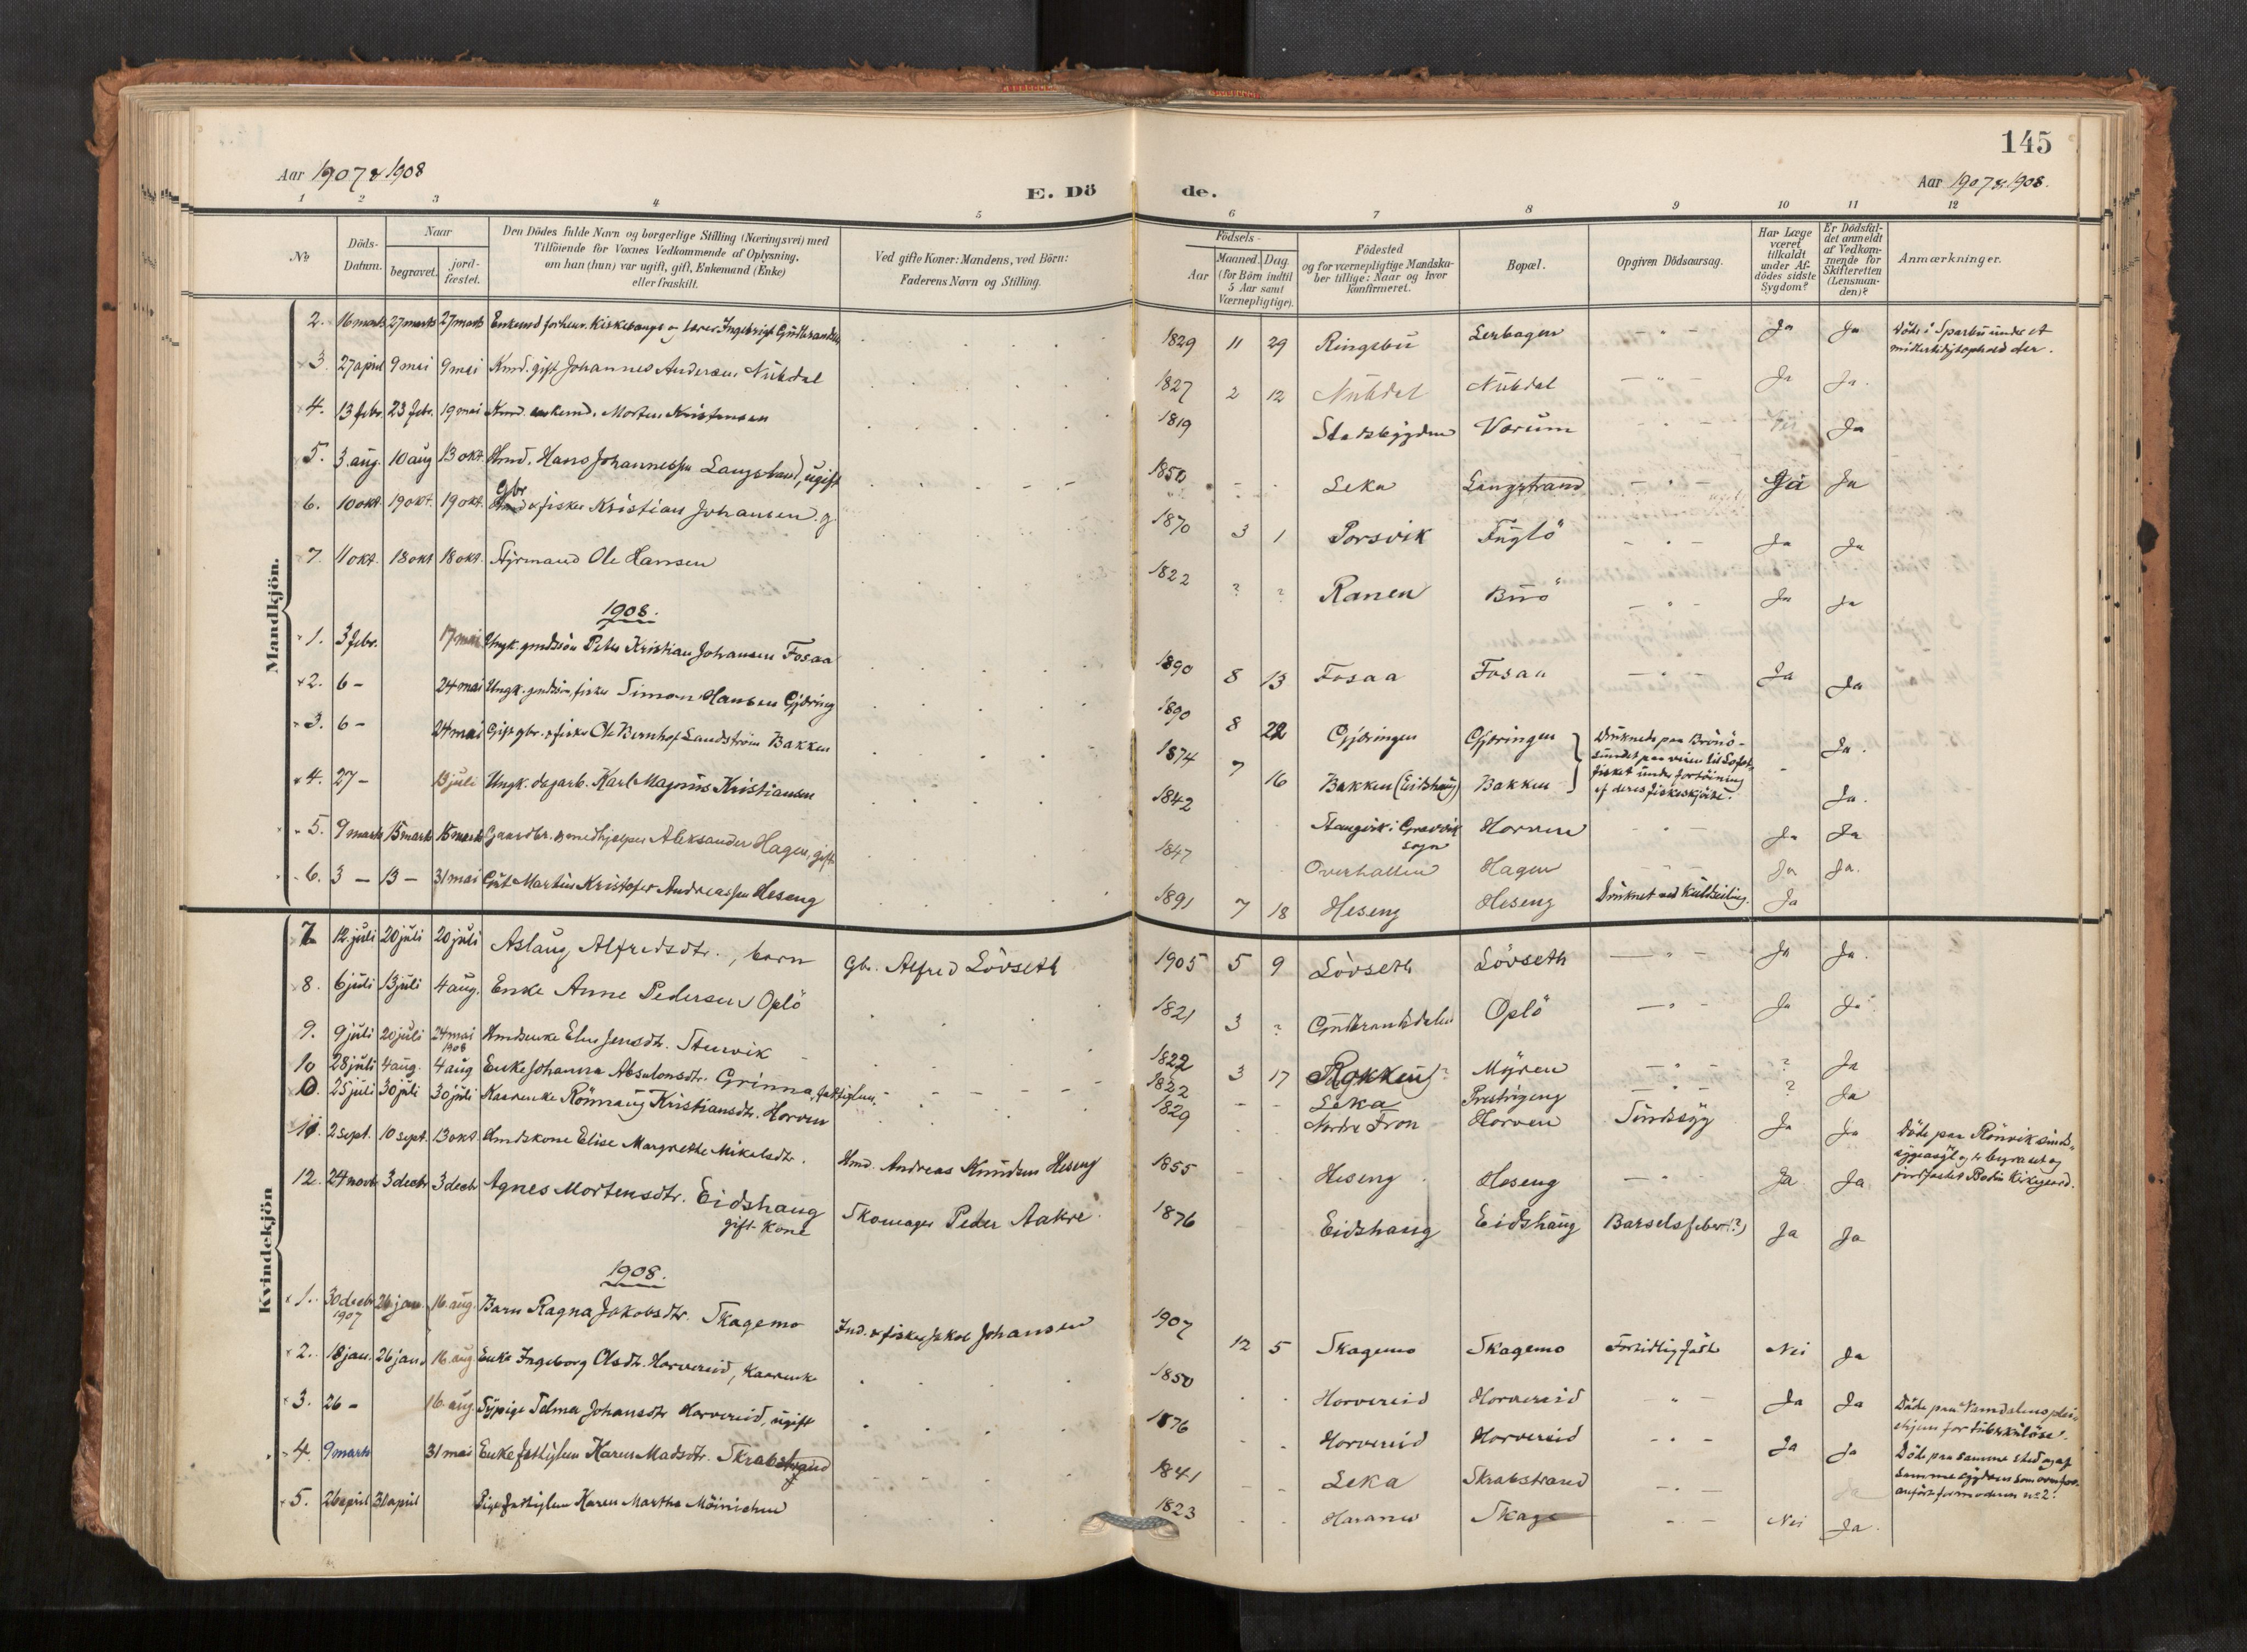 145
Aar 1907 & 1908
E. Dö
de.
Aar 1907 & 1908.
1 2 3 4 5 6 7 8 9 10 11 12
No
Döds-Datum.
Naar
begravet.
jord-fæstet.
Den Dödes fulde Navn og borgerlige Stilling (Næringsvei) med
Tilföiende for Voxnes Vedkommende af Oplysning,
om han (hun) var ugift, gift, Enkemand (Enke)
eller fraskilt.
Ved gifte Koner: Mandens, ved Börn:
Faderens Navn og Stilling.
Födsels-
Aar
Maaned. Dag.
(for Börn indtil
5 Aar samt
Værnepligtige).
Födested
og for værnepligtige Mandska-
ber tillige: Naar og hvor
konfirmeret.
Bopæl.
Opgiven Dödsaarsag.
Har Læge
været
tilkaldt
under Af-
dödes sidste
Sygdom?
Er Dödsfal-
det anmeldt
af Vedkom-
mende for
Skifteretten
(Lensman-
den)?
Anmærkninger.
Mandkjön.
2. 16 marts 27 marts 27 marts Enkemd forhenv. Kirkesanger og lærer Ingebrigt Gudbrandsen 1829 11 29 Ringebu Lerbagen - " - Ja Ja Döde i Sparbu under et
midlertidigt ophold der.
3. 27 april 9 mai 9 mai Kmd. gift Johannes Andersen Nubdal 1827 2 12 Nubdal Nubdal - " - Ja Ja.
4. 13 febr. 23 febr. 19 mai enkemd. Morten Kristensen 1819 Stadsbygden Varum Ja
5. 3. aug. 10 aug 13 okt. Hmd. Hans Johannessen Langstrand, ugift 1850 - - Leka Langstrand - " - Ja Ja
6. 10 okt. 19 okt. 19 okt. Gbr & fisker Kristian Johansen. g. 1870 3 1 Porsvik Fuglö - " - Ja Ja
7. 11 okt. 18 okt 18 okt. Styrmand Ole Hansen 1822 ? ? Ranen Buö - " - Ja Ja
1908.
1. 3 febr. 17 mai Ungk. gmdssön Peter Kristian Johansen Fosaa 1890 8 13 Fosaa Fosaa - " - Ja Ja
2. 6 - 24 mai Ungk. gmdssön, fisker Simon Hansen Gjöring 1890 8 22 Gjöringen Gjöringen Druknede paa Brönö-
sundet paa veien til Lofot-
fisket under fortöining
af deres fiskeskjöite. Ja.
3. 6 - 24 mai Gift gbr. & fisker Ole Bernhof Landström Bakken 1874 7 16 Bakken (Eidshaug) Bakken - Ja.
4. 27 - 13 juli Ungk. dagarb. Karl Magnus Kristiansen 1842 Stangvik i Gravvik
sogn Horven - " - Ja Ja
5. 9 marts 15 marts 15 marts Gaardbr. & medhjælper Aleksander Hagen, gift 1847 Overhallen Hagen Ja Ja.
6. 3 - 13 - 31 mai Gut Martin Kristofer Andreassen Heseng 1891 7 18 Heseng Heseng Druknet ved Kuldseiling. Ja
Kvindekjön
7. 12. juli 20 juli 20 juli Aslaug Alfredsdtr., barn Gbr. Alfred Lövseth 1905 5 9 Lövseth Lövseth - " - Ja Ja.
8. 6 juli 13 juli 4 aug. Enke Anne Pedersen Oplö 1821 3 ? Gudbrandsdalen Oplö - " - Ja Ja
9. 9 juli 20 juli 24 mai
1908 Hmdsenke Elen Jensdtr. Stenvik 1822 3 17 Rokken? Myren - " - ? Ja
10 28 juli 4 aug. 4 aug Enke Johanna Absalonsdtr. Grinna, fattiglem. 1822 - - Leka Prestvigeng - " - ? Ja
10. 25 juli 30 juli 30 juli Kaarenke Rönnaug Kristiansdtr. Horven 1829 Nordre Fron Horven Sindssyg Ja Ja Döde paa Rönvik sinds-
sygeasyl og er begravet og
jordfæstet Bodin Kirkegaard.
11. 2 sept. 10 sept. 13 okt. Hmdskone Elise Margrethe Mikalsdtr. Hmd. Andreas Knudsen Heseng 1855 - Heseng Heseng - " - Ja Ja
12. 24 novbr 3 decbr 3 decbr Agnes Mortensdtr. Eidshaug
gift Kone Skomager Peder Aakre. 1876 Eidshaug Eidshaug Barselfeber (?) Ja Ja
1908.
1. 30 decbr
1907 26 jan. 16. aug. Barn Ragna Jakobsdtr. Skagemo Ind. & fisker Jakob Johansen 1907 12 5 Skagemo Skagemo Fortidlig födt Nei Ja
2. 18 jan. 26 jan. 16. aug. Enke Ingeborg Olsdtr. Horvereid, Kaarenke 1850 Horvereid Horvereid - " - Ja Ja Döde paa Namdalens plei-
ehjem for tuberkulöse.
3. 26 - 16 aug. Sypige Selmer Johansdtr Horvereid, ugift 1876 - - Horvereid Horvereid - " - Ja Ja Döde paa samme sted og af
samme sygdom som ovenfor
anfört for moderen no 2.
4. 9 marts 31 mai Enke fattiglem Karen Madsdtr. Skrabstrand 1841 - - Leka Skrabstrand - " - Ja
5. 26 april 31 april Pige fattiglem Karen Martha Möinichen 1823 - - Haranes Skage - " - Nei Ja.